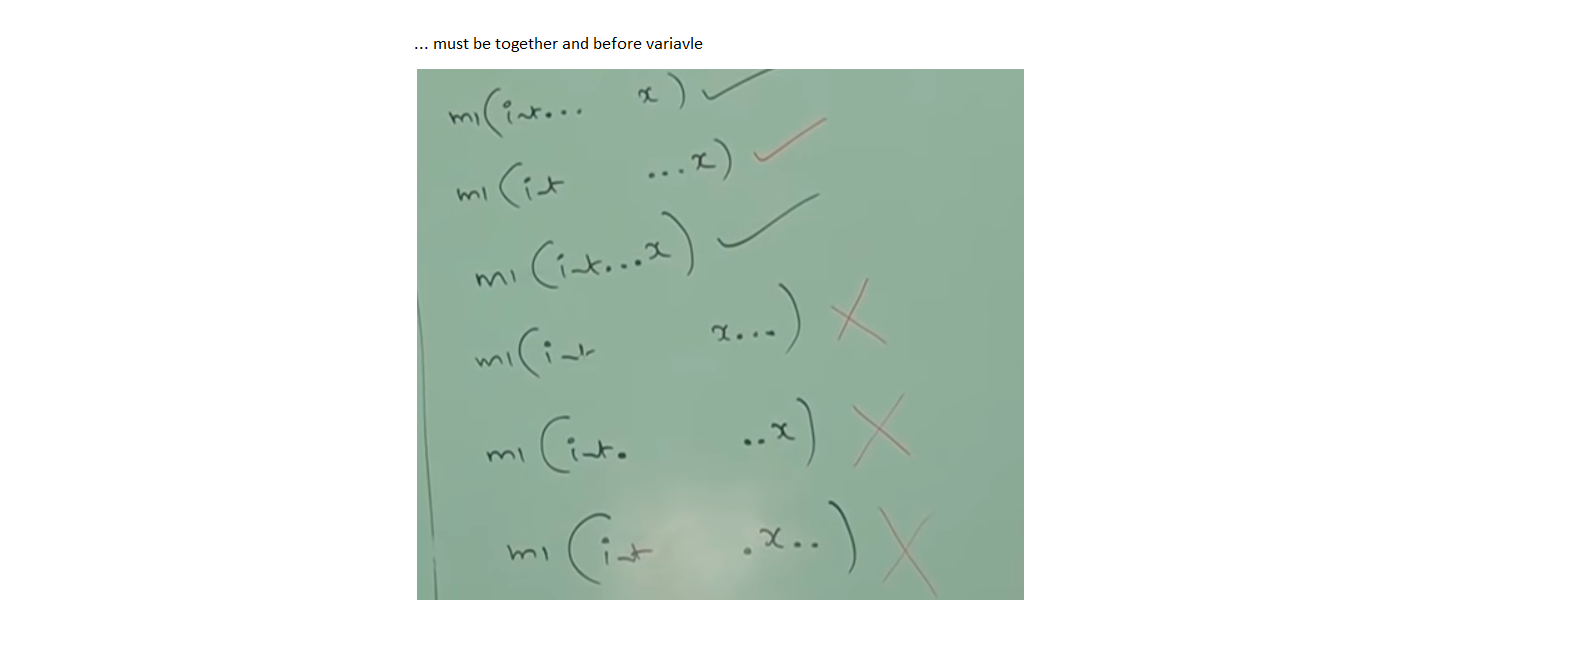 ... must be together and before variavle
m1(int... x) ✓
m1(int ...x) ✓
m1(int...x) ✓
m1(int x...) ✗
m1(int. ..x) ✗
m1(int .x..) ✗